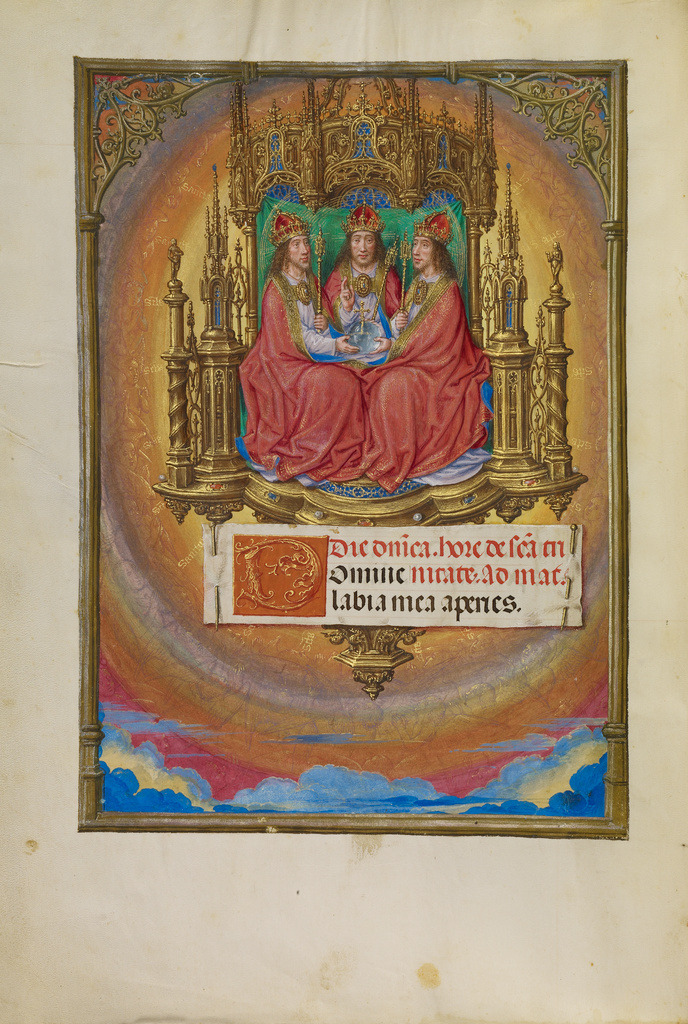 Die dn̄ica. hore de sc̄a tri
Domine nitate. Ad mat.
labia mea aperies.